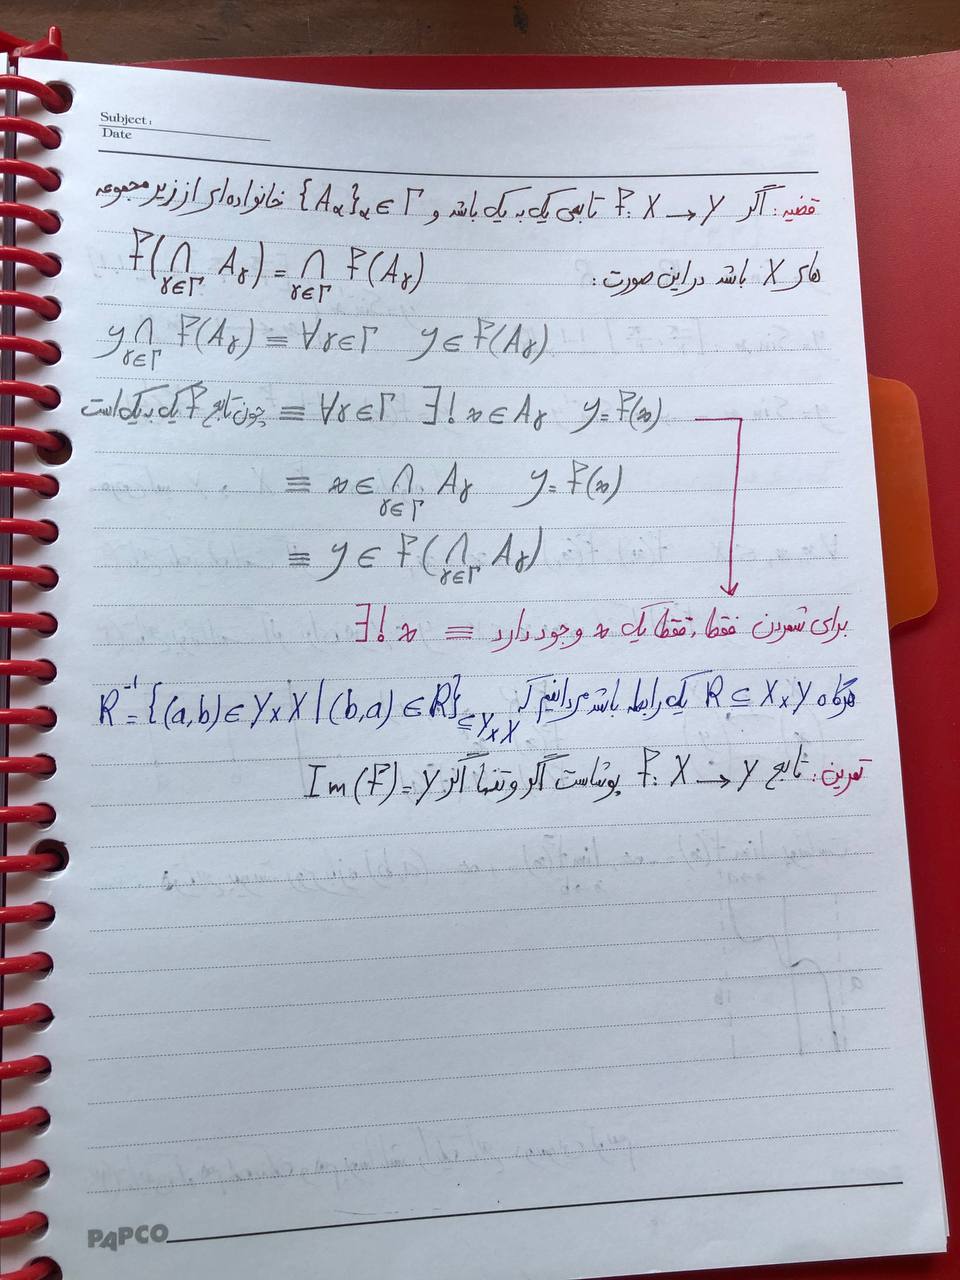 Subject:
Date
قضیه: اگر f: X → Y تابعی یک به یک باشد و {Aα}α∈Γ خانواده‌ای از زیر مجموعه
های X باشد در این صورت: f(⋂γ∈Γ Aγ) = ⋂γ∈Γ f(Aγ)
y ⋂γ∈Γ f(Aγ) ≡ ∀γ∈Γ y∈f(Aγ)
چون تابع f یک به یک است ≡ ∀γ∈Γ ∃! x∈Aγ y=f(x)
≡ x∈⋂γ∈Γ Aγ y=f(x)
≡ y∈f(⋂γ∈Γ Aγ)
برای شمردن فقط، فقط یک x وجود دارد ≡ ∃! x
هرگاه R⊆X×Y یک رابطه باشد می‌دانیم که R⁻¹={(a,b)∈Y×X|(b,a)∈R}⊆Y×X
تمرین: تابع f: X → Y پوشاست اگر و تنها اگر Im(f)=Y
PAPCO